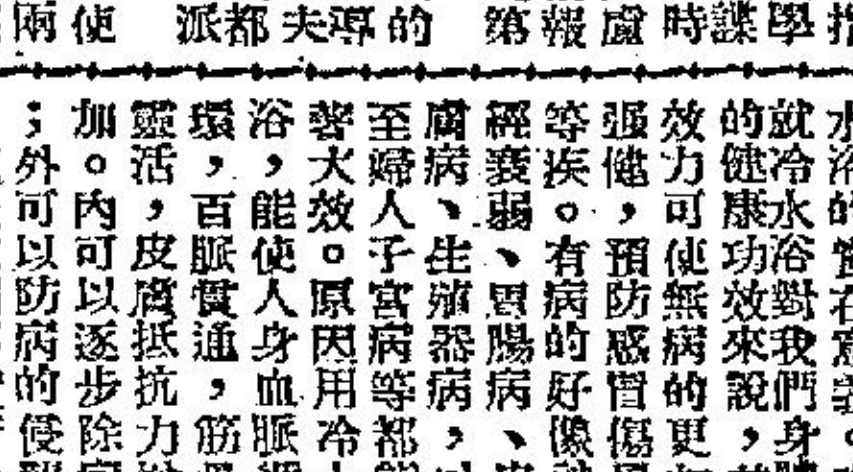 學
時
慮
報
第
的
專
夫
都
派
使
兩
就冷水浴對我們身
的健康功效來說，
效力可使無病的更
强健，預防感冒傷
等疾。有病的好像
經衰弱、胃腸病、
膚病、生殖器病，
至婦人子宮病等都
著大效。原因用冷
浴，能使人身血脈
環，百脈貫通，筋
靈活，皮膚抵抗力
加。內可以逐步除
；外可以防病的侵